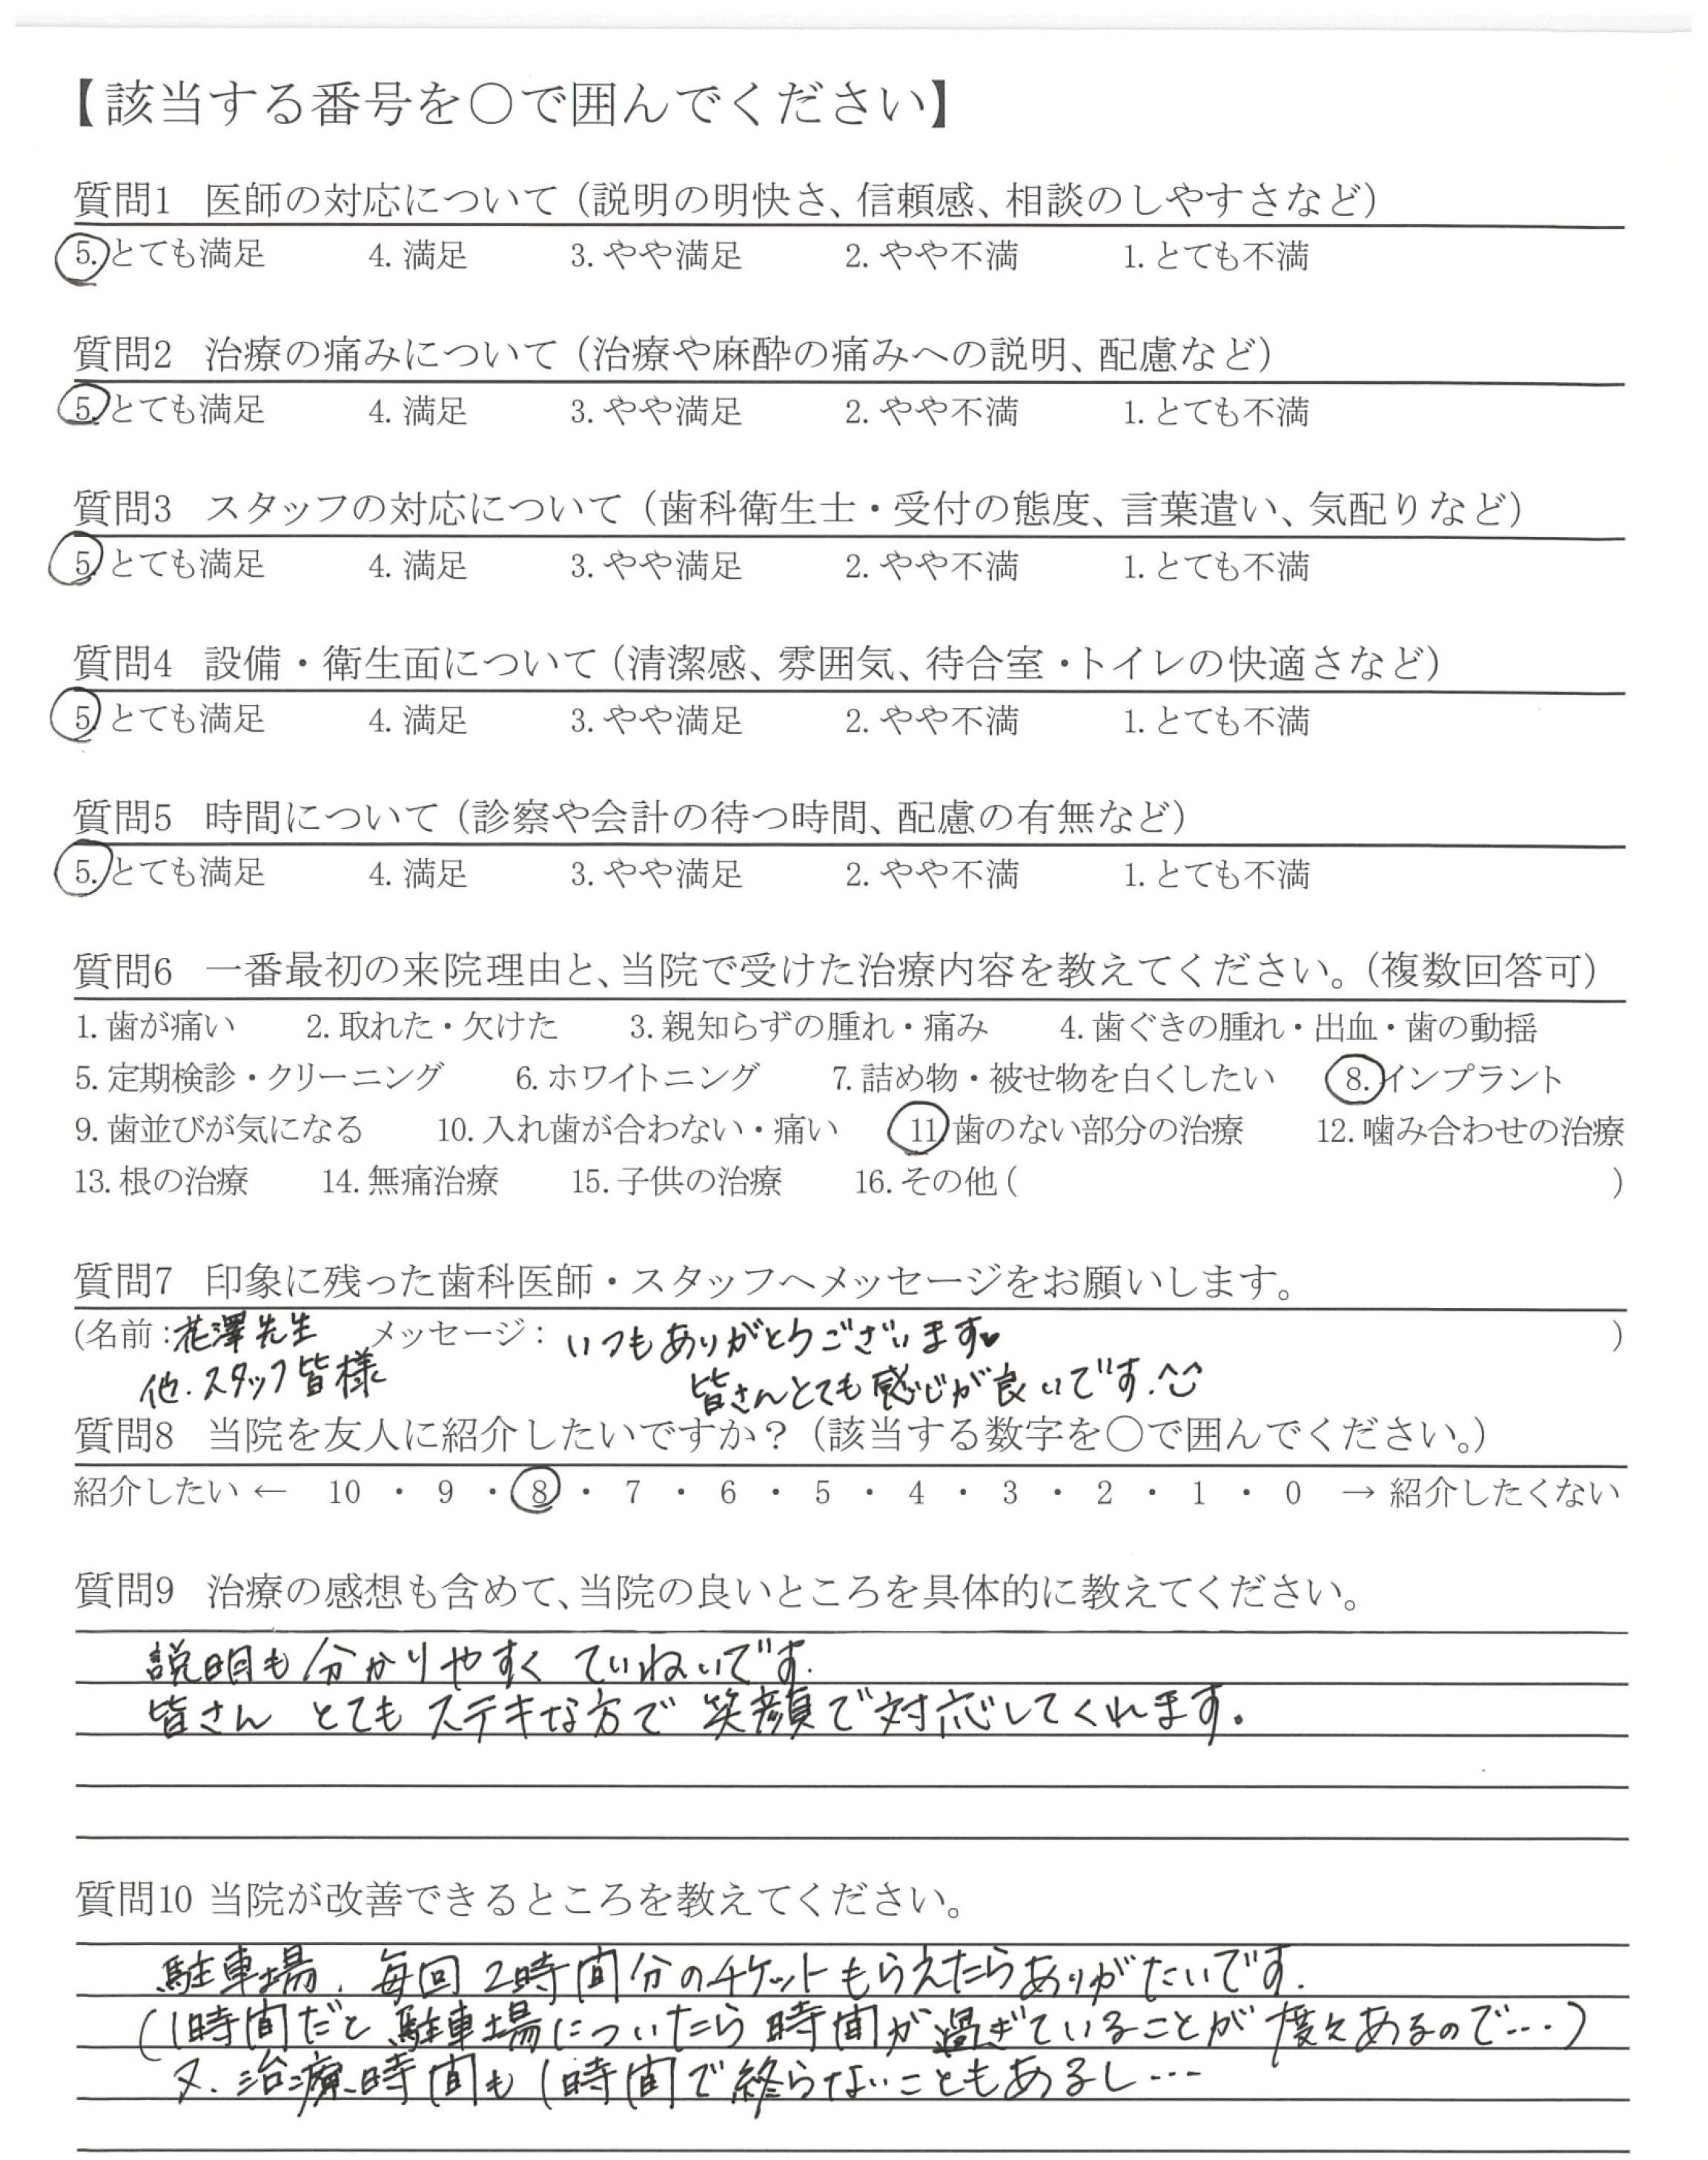 【該当する番号を〇で囲んでください】
質問1 医師の対応について（説明の明快さ、信頼感、相談のしやすさなど）
5.とても満足 4.満足 3.やや満足 2.やや不満 1.とても不満
質問2 治療の痛みについて（治療や麻酔の痛みへの説明、配慮など）
5.とても満足 4.満足 3.やや満足 2.やや不満 1.とても不満
質問3 スタッフの対応について（歯科衛生士・受付の態度、言葉遣い、気配りなど）
5.とても満足 4.満足 3.やや満足 2.やや不満 1.とても不満
質問4 設備・衛生面について（清潔感、雰囲気、待合室・トイレの快適さなど）
5.とても満足 4.満足 3.やや満足 2.やや不満 1.とても不満
質問5 時間について（診察や会計の待つ時間、配慮の有無など）
5.とても満足 4.満足 3.やや満足 2.やや不満 1.とても不満
質問6 一番最初の来院理由と、当院で受けた治療内容を教えてください。（複数回答可）
1.歯が痛い 2.取れた・欠けた 3.親知らずの腫れ・痛み 4.歯ぐきの腫れ・出血・歯の動揺
5.定期検診・クリーニング 6.ホワイトニング 7.詰め物・被せ物を白くしたい 8.インプラント
9.歯並びが気になる 10.入れ歯が合わない・痛い 11.歯のない部分の治療 12.噛み合わせの治療
13.根の治療 14.無痛治療 15.子供の治療 16.その他（ ）
質問7 印象に残った歯科医師・スタッフへメッセージをお願いします。
（名前：花澤先生 メッセージ：いつもありがとうございます♥ ）
他.スタッフ皆様 皆さんとても感じが良いです.^^
質問8 当院を友人に紹介したいですか？（該当する数字を〇で囲んでください。）
紹介したい ← 10 ・ 9 ・ 8 ・ 7 ・ 6 ・ 5 ・ 4 ・ 3 ・ 2 ・ 1 ・ 0 → 紹介したくない
質問9 治療の感想も含めて、当院の良いところを具体的に教えてください。
説明も分かりやすく ていねいです.
皆さん とても ステキな方で 笑顔で対応してくれます。
質問10 当院が改善できるところを教えてください。
駐車場. 毎回 2時間分のチケットもらえたらありがたいです.
（1時間だと 駐車場についたら 時間が過ぎていることが 度々あるので…）
又. 治療時間も 1時間で終らないこともあるし…